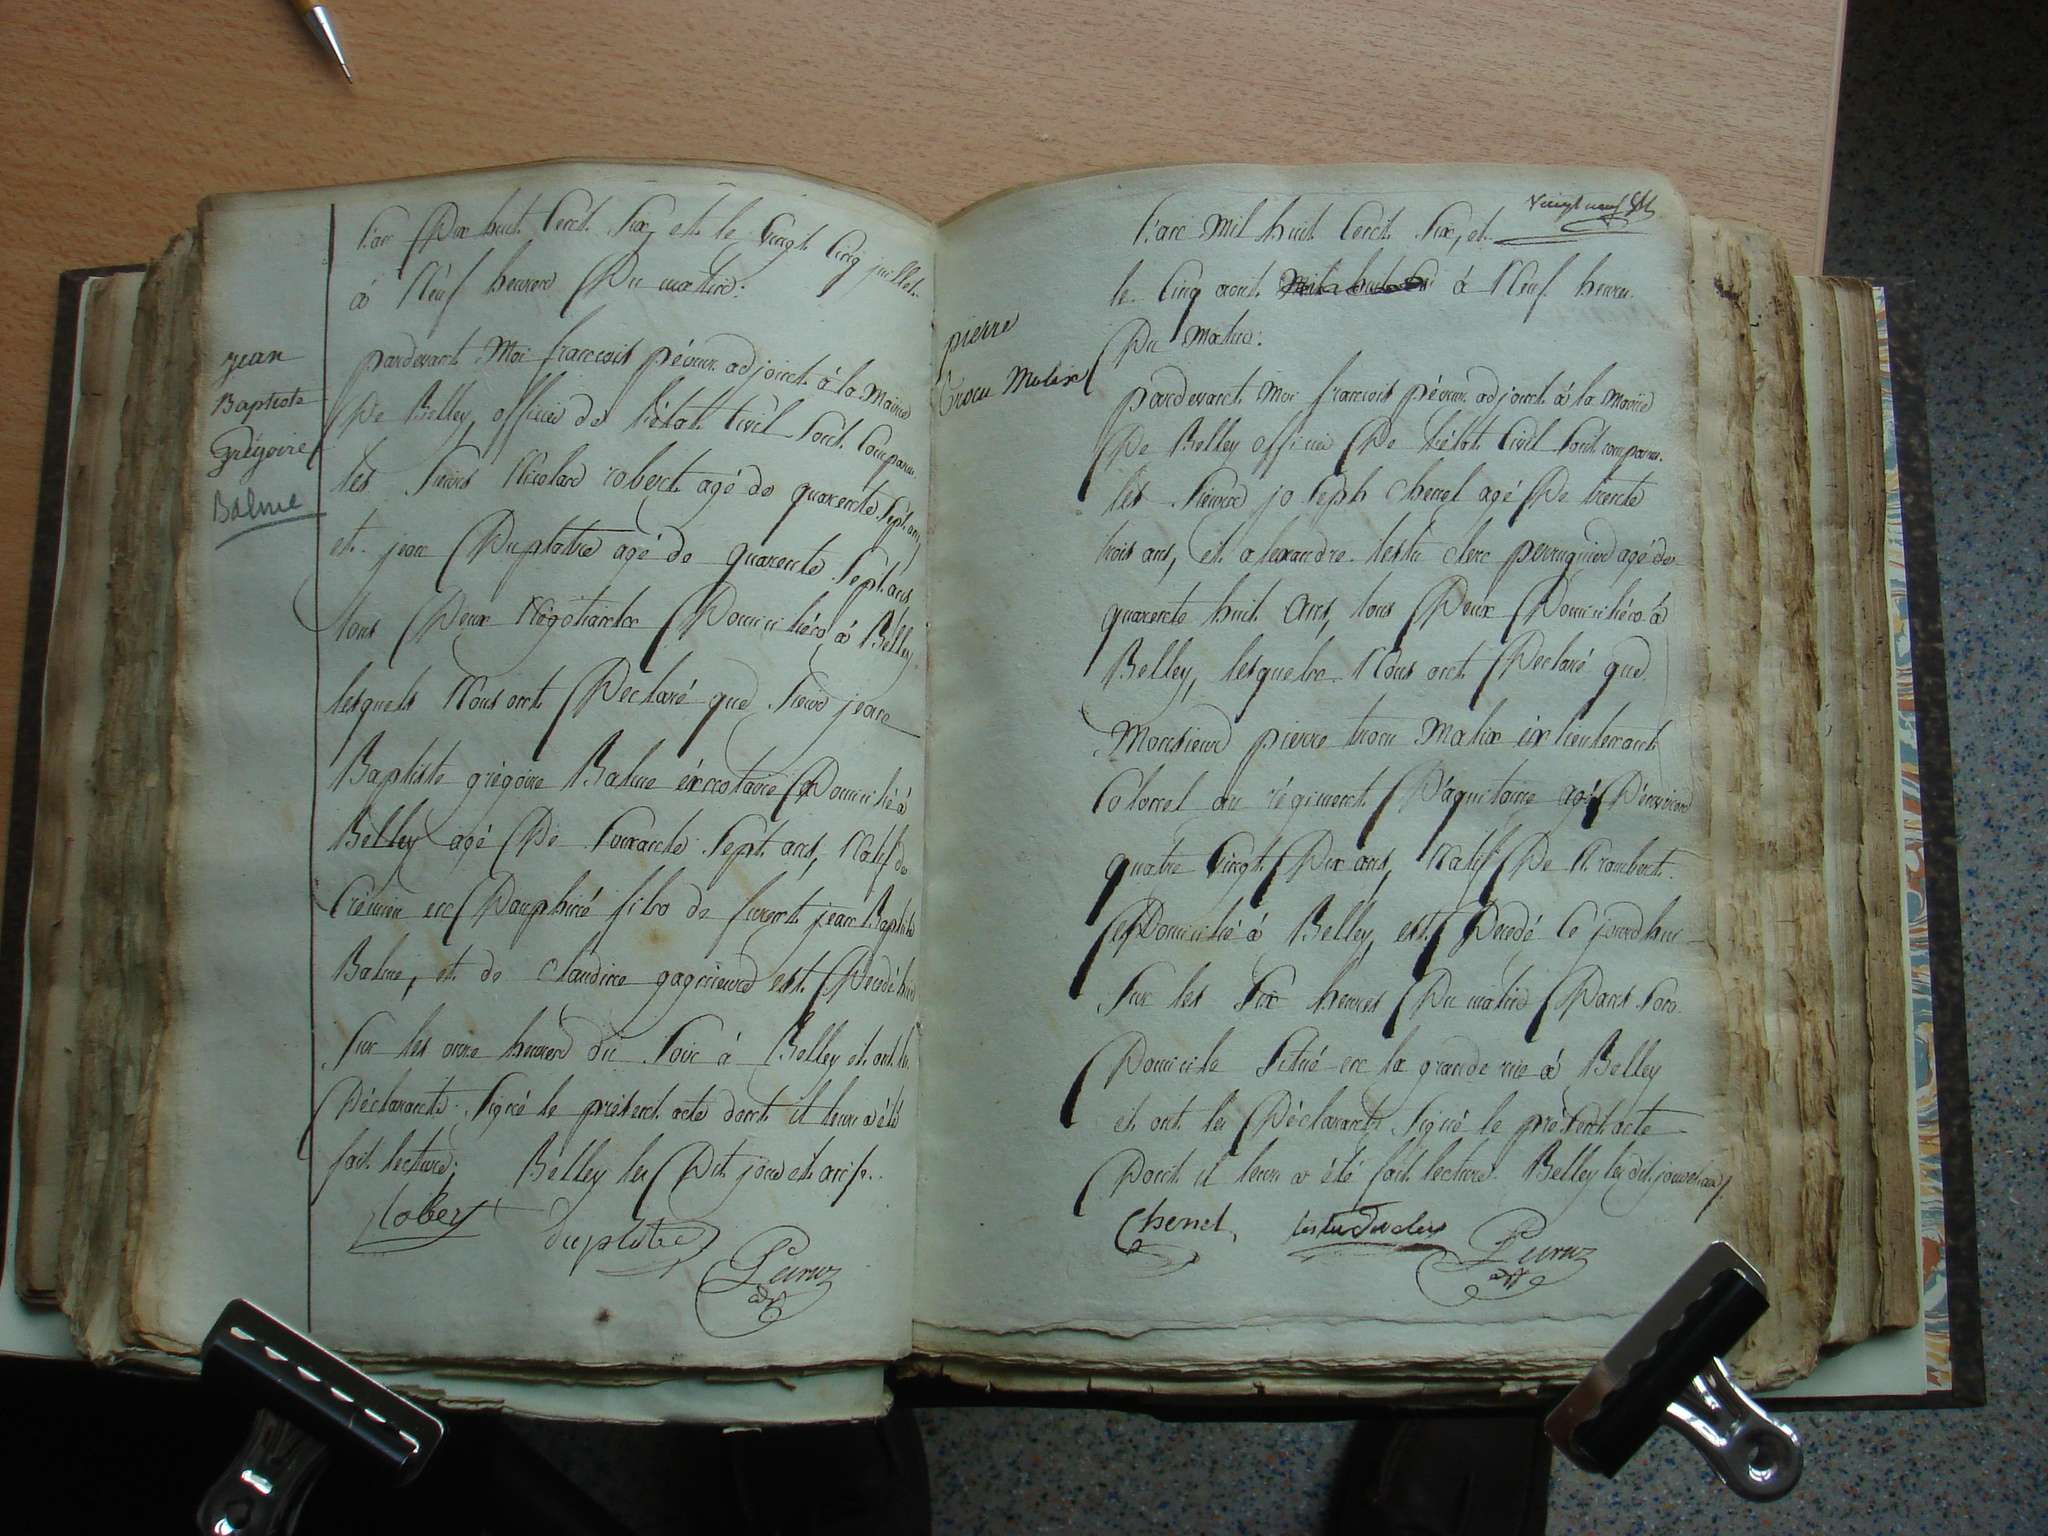 L'an Dix huit Cent Six, et le Vingt Cinq juillet
à Neuf heures Du matin:
jean
Baptiste
Grégoire
Balme
pardevant Moi françois péyruz adjoint à la Mairie
De Belley, officier de L'état Civil Sont Comparus
les Sieurs Nicolas robert agé de quarente Sept ans,
et jean Duplatre agé de quarente Sept ans
tous Deux Négotiants Domiciliés à Belley,
lesquels Nous ont Declaré que Sieur jean
Baptiste grégoire Balme éx notaire Domicilié à
Belley agé De Soixante Sept ans, Natif de
Crémieu en Dauphiné fils de furent jean Baptiste
Balme, et de Claudine est Decedé hier
Sur les onze heures du Soir à Belley et ont les
Déclarants Signé le présent acte dont il leur a été
fait lecture; Belley les Dit jour et an
Robert duplatre
Peiruz
adjt
Vingt neuf
L'an Mil huit Cent Six, et
le Cinq aout à Neuf heures
Du Matin:
pierre
trocu Molix
pardevant Moi françois péyruz adjoint à la Mairie
De Belley officier De L'état Civil Sont comparus
les Sieurs joseph Chenel agé De trente
trois ans, et alexandre testu clerc perruquier agé de
quarente huit ans, tous Deux Domiciliés à
Belley, lesquels Nous ont Declaré que
Monsieur pierre trocu Molix éx lieutenant
Colonel au régiment D'aquitaine agé D'environ
quatre Vingt Dix ans, Natif De St rambert
et Domicilié à Belley, est Decedé Ce jourdhui
Sur les Six heures Du matin Dans Son
Domicile Situé en la grande rue à Belley
et ont les Déclarants Signé le présent acte
Dont il leur a été fait lecture Belley les dit jour et an
Chenel testu
Peiruz
adjt